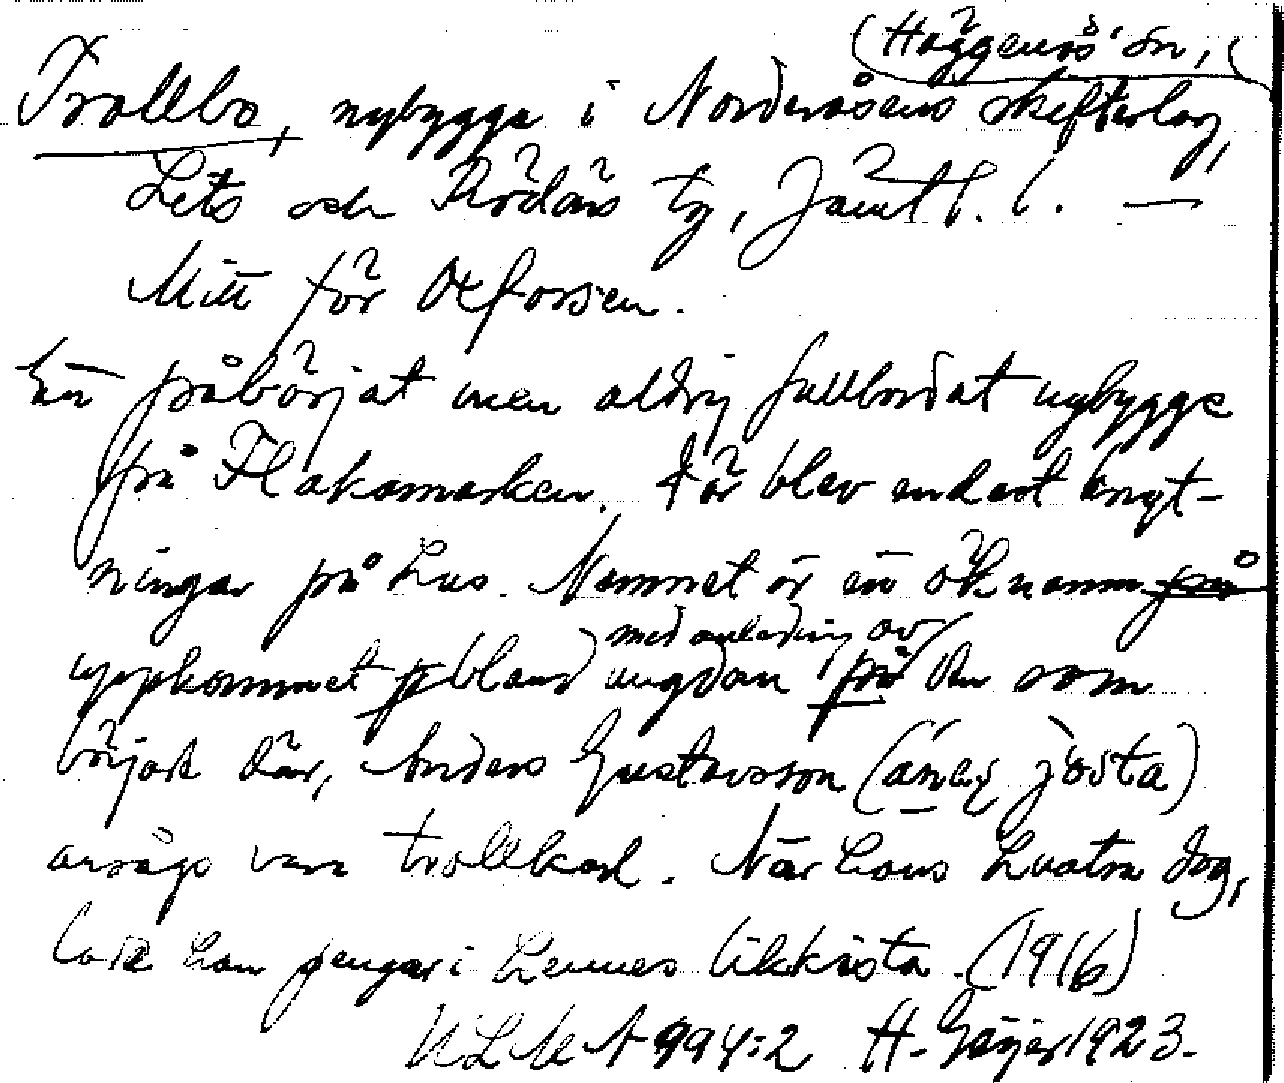 (Häggenås sn,)
Trollbo, nybygge i Norderåsens skifteslag,
Lits och Rödöns tg, Jämtl. l. —
Mitt för Oxforsen.
Ett påbörjat men aldrig fullbordat nybygge
på Flakamarken. Där blev endast knyt-
ningar på hus. Namnet är ett öknamn på
uppkommet p bland ungdom med anledning av på den som
började där, Anders Gustavsson (áneş jösta)
ansågs vara trollkarl. När hans hustru dog,
lade han pengar i hennes likkista. (1916)
ULMA 994:2 H. Geijer 1923.